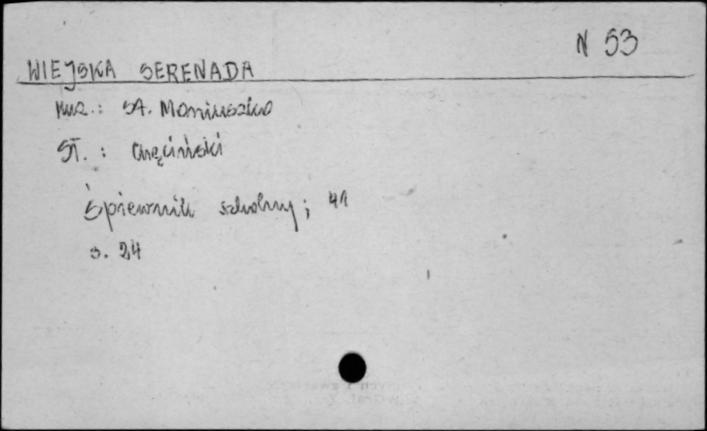 N 53
WIEJSKA SERENADA
Muz.: St. Moniuszko
Sł. : Chęciński
Śpiewnik szkolny; 41
s. 24